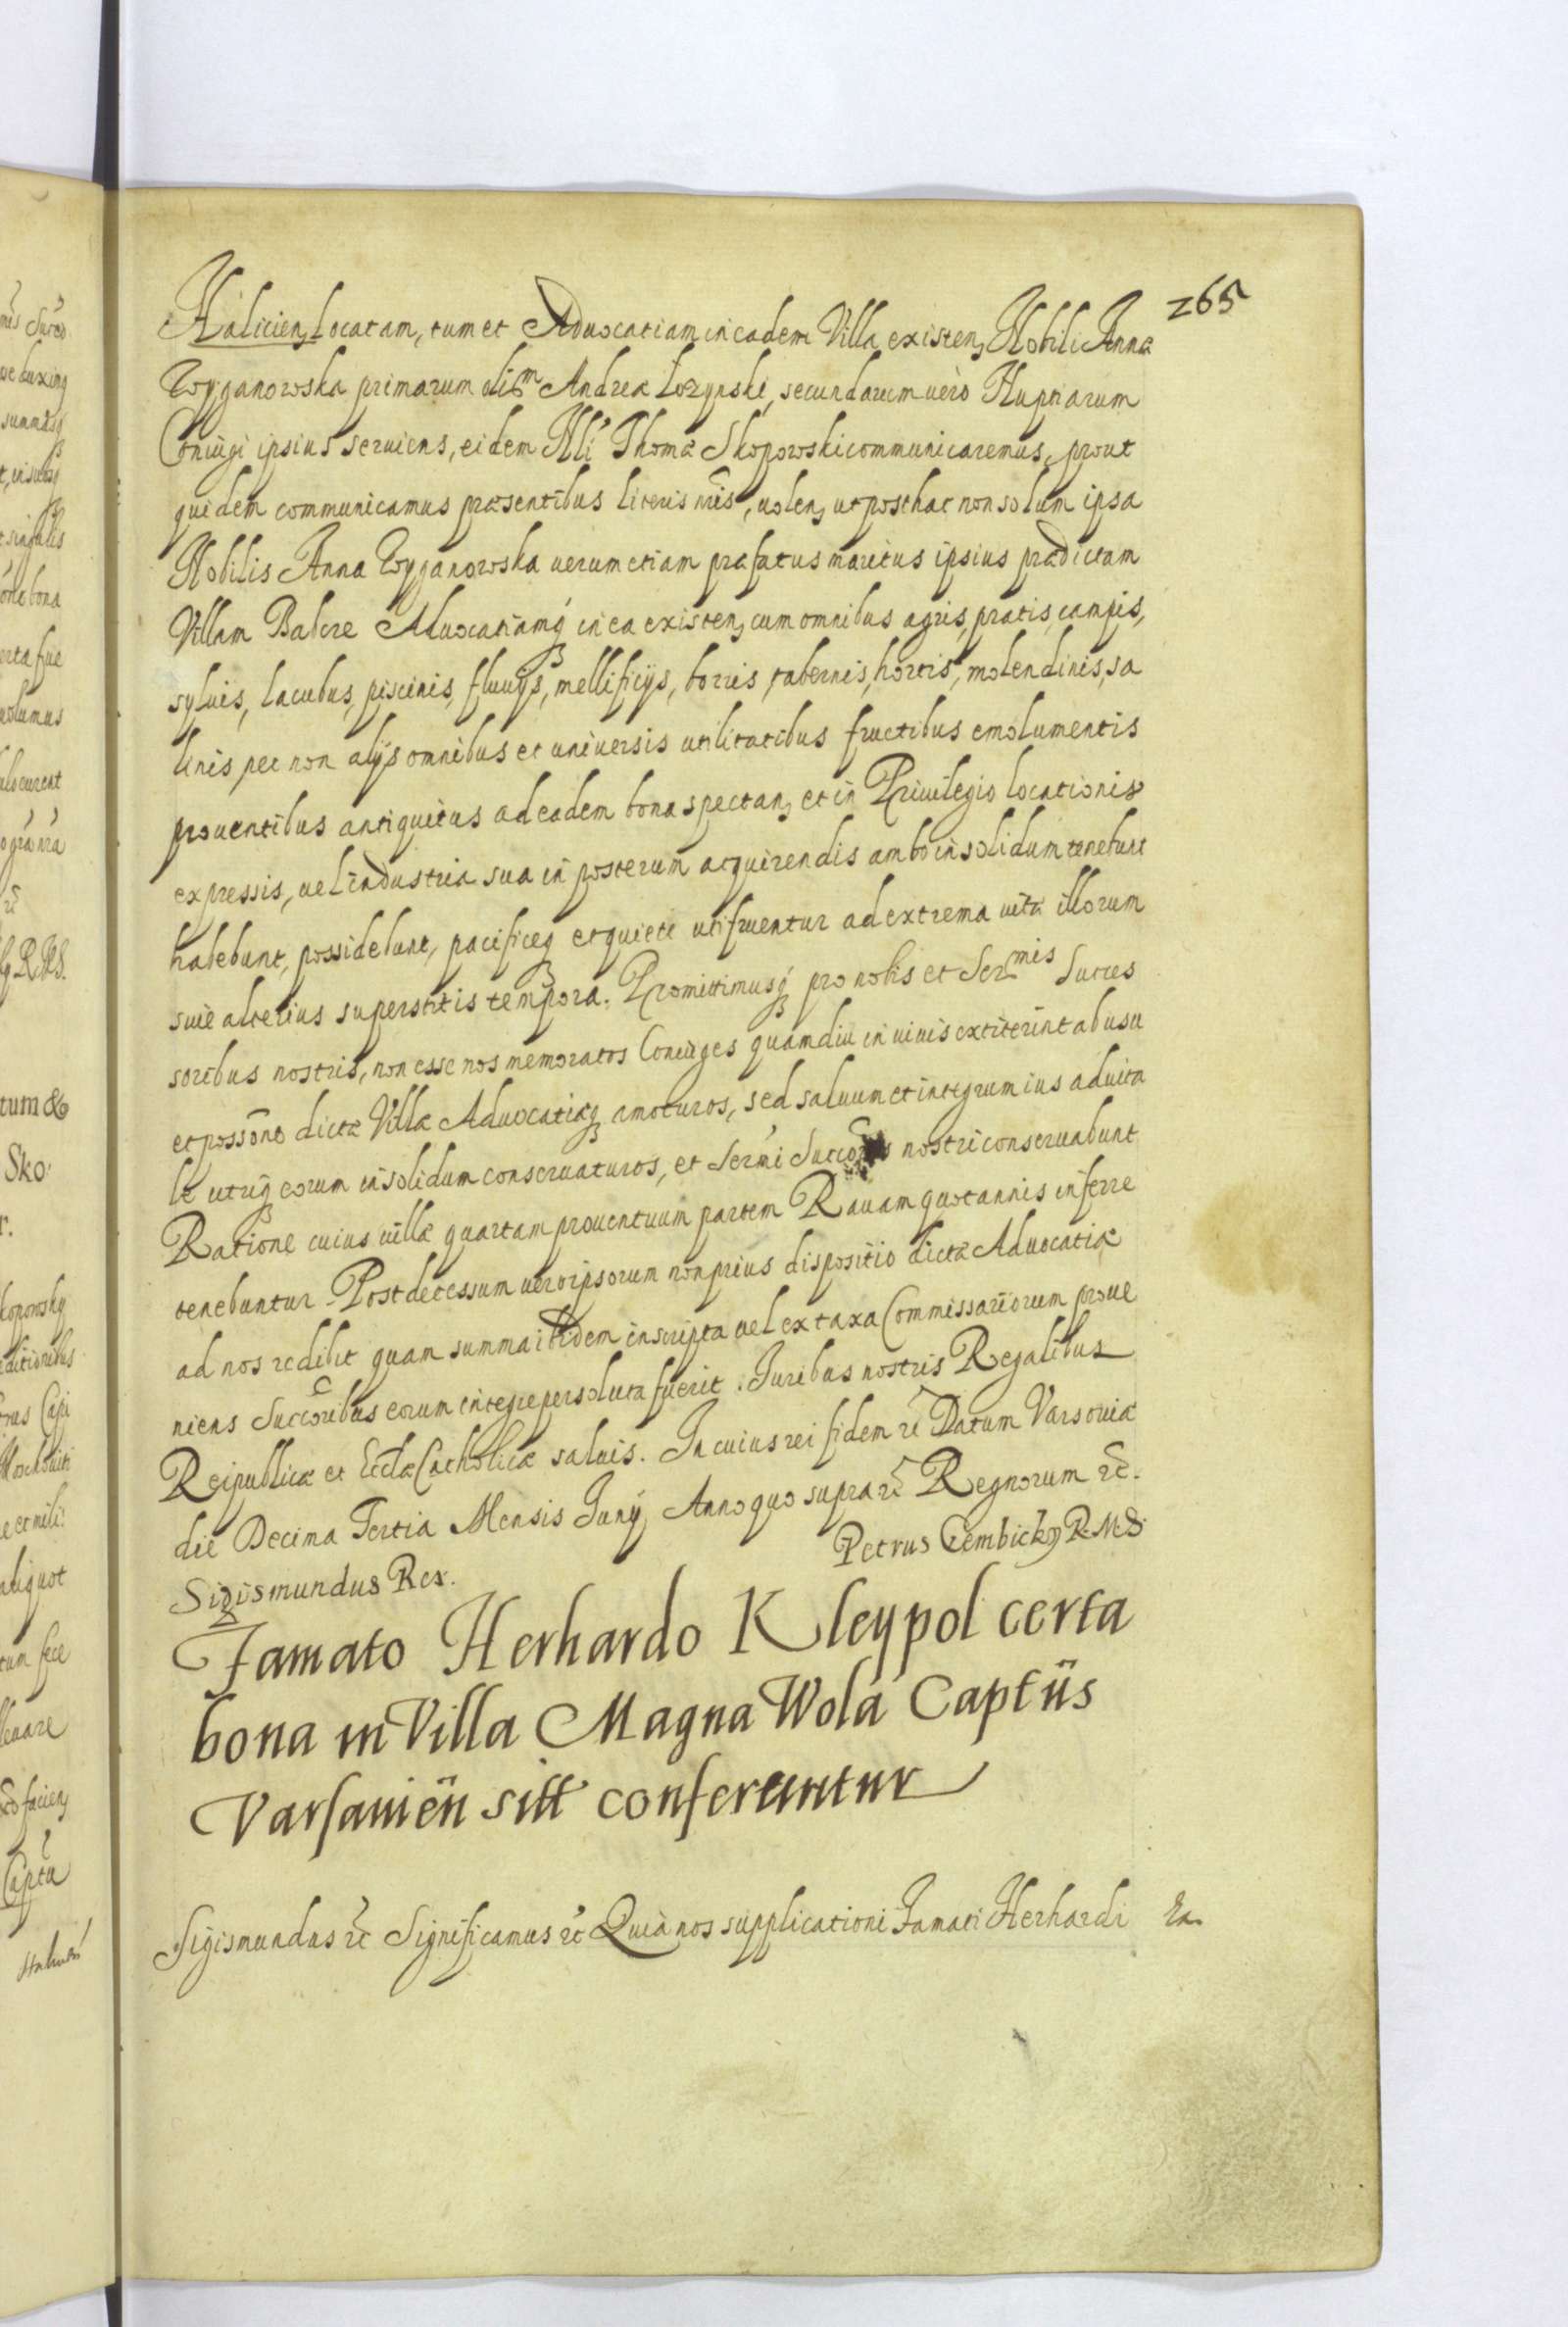 265
Halicien, Locatam, tum et Aduocatiam in eadem Villa existen, Nobili Anna
Wyganowska primarum olim Andreæ Łozynski, secundarum uerò Nuptiarum
Coniugi ipsius seruiens, eidem Nli Thomæ Skopowski communicaremus, prout
quidem communicamus præsentibus literis nris, uolen, ut posthac non solum ipsa
Nobilis Anna Wyganowska uerum etiam præfatus maritus ipsius prædictam
Villam Babcze Aduocatiamq in ea existen, cum omnibus agris, pratis, campis,
syluis, lacubus, piscinis, fluuijs, mellificijs, borris, tabernis, hortis, molendinis, sa
linis, nec non alijs omnibus et uniuersis utilitatibus fructibus emolumentis
prouentibus antiquitus ad eadem bona spectan, et in Priuilegio locationis
expressis, uel industria sua in posterum acquirendis ambo in solidum tenebunt
habebunt, possidebunt, pacificeq et quiete utifruentur ad extrema uitæ illorum
siue alterius superstitis tempora. Promittimusq pro nobis et Sermis Succes
soribus nostris, non esse nos memoratos Coniuges quamdiu in uiuis extiterint ab usu
et possõne dictæ Villæ Aduocatiæq amoturos, sed saluum et integrum ius aduita
le utriq eorum in solidum conseruaturos, et Sermi Succores nostri conseruabunt
Ratione cuius uillæ quartam prouentuum partem Rauam quotannis inferre
tenebuntur. Post decessum uero ipsorum non prius dispositio dictæ Aduocatiæ
ad nos redibit quam summa ibidem inscripta uel ex taxa Commissariorum proue
niens Succoribus eorum integre persoluta fuerit. Iuribus nostris Regalibus
Reipublicæ et Ecclæ Catholicæ saluis. In cuius rei fidem etc Datum Varsouiæ
die Decima Tertia Mensis Iunij Anno quo supra etc Regnorum etc.
Petrus Gembicky R. M. S.
Sigismundus Rex.
Famato Herhardo Kleypol certa
bona in Villa Magna Wola Captûs
Varsauieñ sitt conferuntur
Sigismundus etc Significamus etc Quia nos supplicationi Famati Herhardi